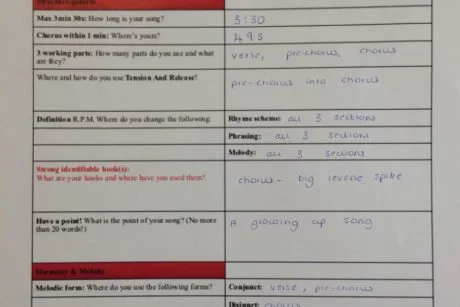 Structure/general
Max 3min 30s: How long is your song? 3:30
Chorus within 1 min: Where's yours? 49s
3 working parts: How many parts do you use and what are they? verse, pre-chorus, chorus
Where and how do you use Tension And Release? pre-chorus into chorus
Definition R.P.M. Where do you change the following: Rhyme scheme: all 3 sections
Phrasing: all 3 sections
Melody: all 3 sections
Strong identifiable hook(s):
What are your hooks and where have you used them? chorus - big reverse spike
Have a point! What is the point of your song? (No more than 20 words!) A growing up song
Harmony & Melody
Melodic form: Where do you use the following forms? Conjunct: verse, pre-chorus
Disjunct: chorus